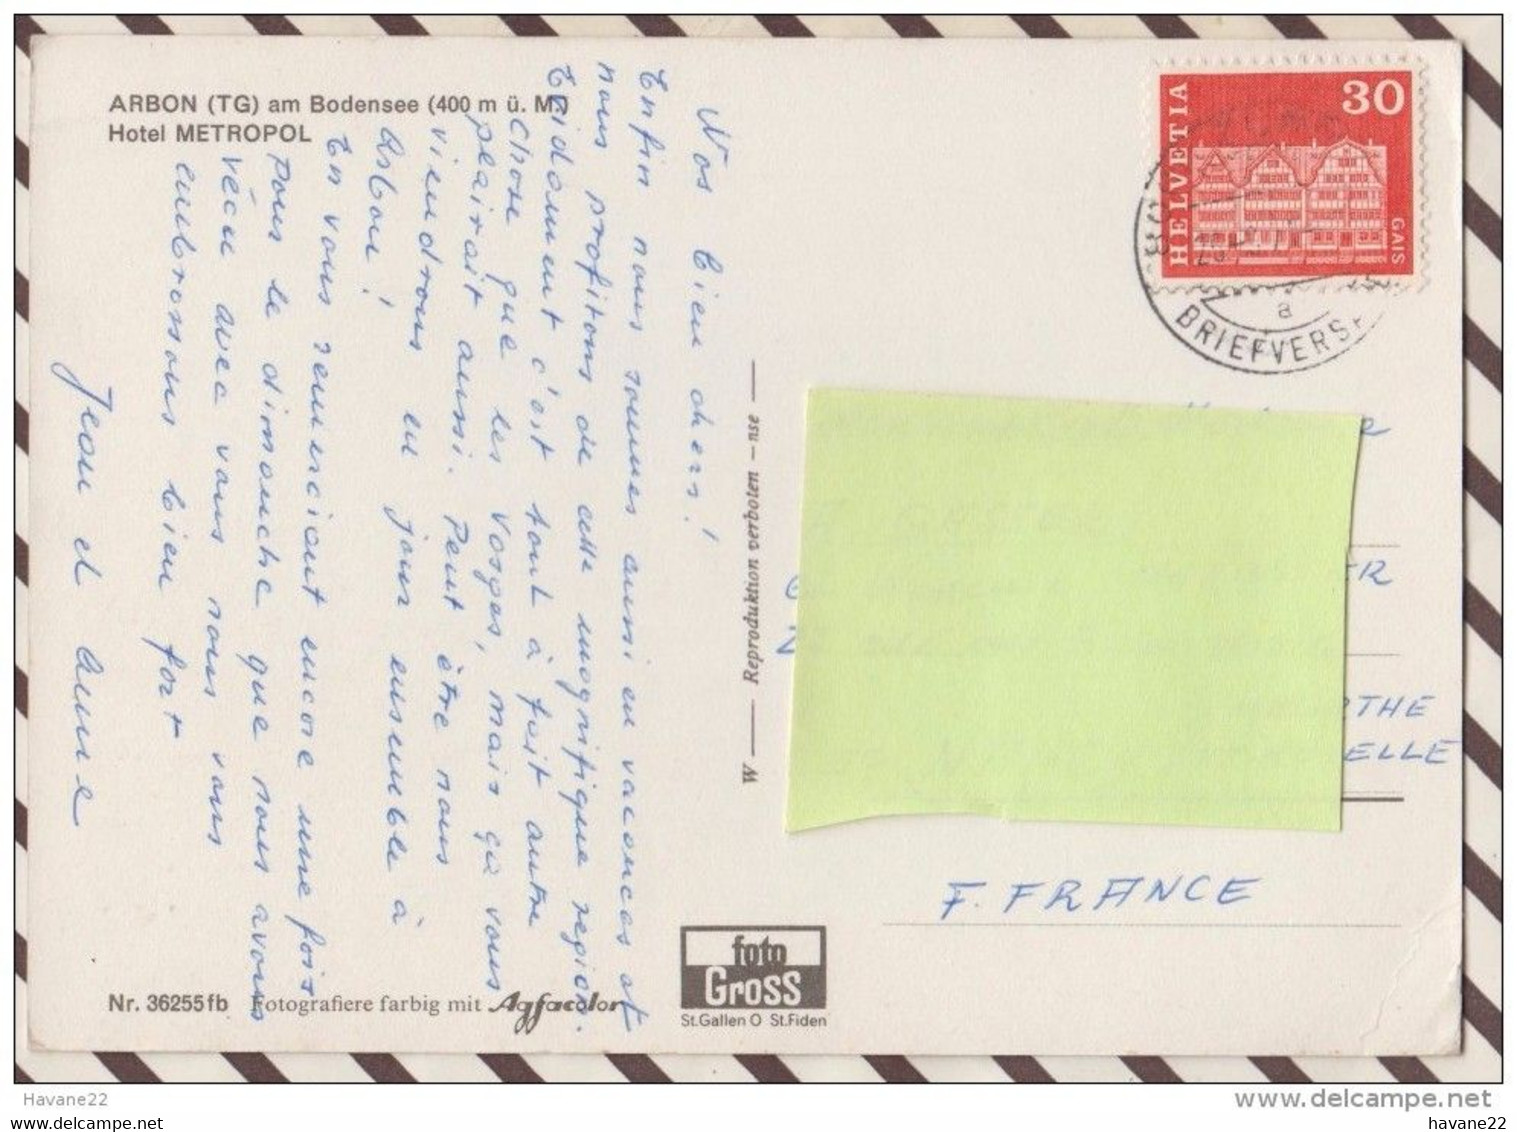 ARBON (TG) am Bodensee (400 m ü. M.)
Hotel METROPOL
Nos bien chers!
Enfin nous sommes aussi en vacances et
nous profitons de cette magnifique region.
Evidemment c'est tout à fait autre
chose que les Vosges, mais ça vous
plairait aussi. Peut être nous
viendrons en jour ensemble à
Arbon!
En vous remerciant encore une fois
pour le dimanche que nous avons
vécu avec vous nous vous
embrassons bien fort
Jean et Anne
Nr. 36255fb Fotografiere farbig mit Agfacolor
W — Reproduktion verboten – nse —
foto
Gross
St.Gallen O St.Fiden
HELVETIA
30
GAIS
a
BRIEFVERS
ER
RTHE
ELLE
F. FRANCE
Havane22
www.delcampe.net
havane22